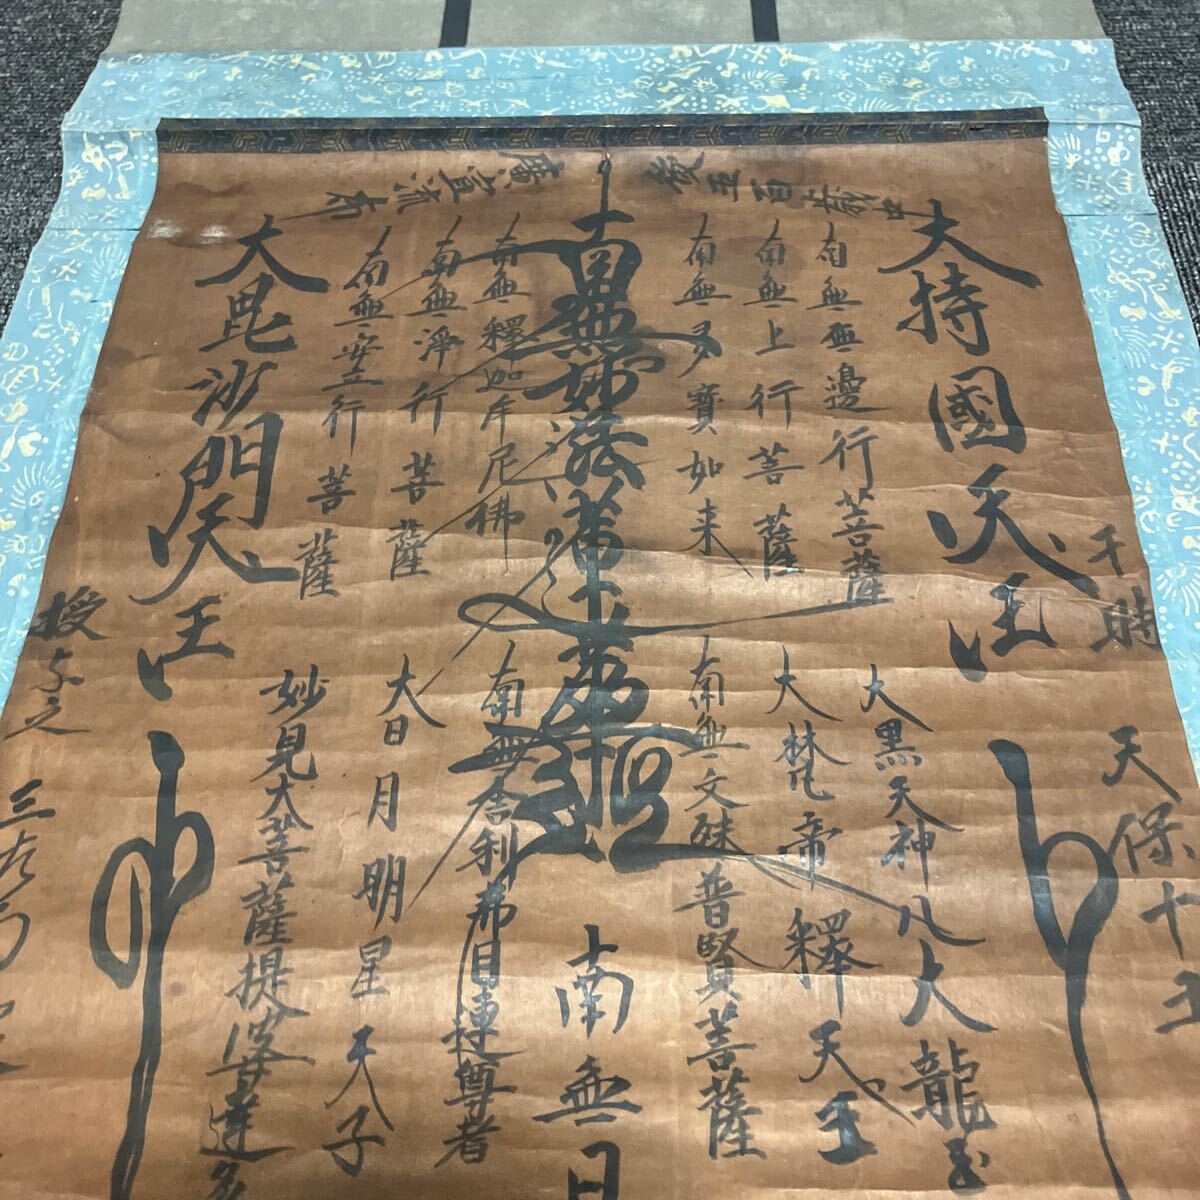 後五百歳中
廣宣流布
大持國天王
南無無邊行菩薩
南無上行菩薩
南無多寶如来
南無妙法蓮華経
南無釋迦牟尼佛
南無淨行菩薩
南無安立行菩薩
大毘沙門天王
于時 天保十五
大黒天神八大龍王
大梵帝釋天王
南無文殊普賢菩薩
南無日
南無舎利弗目連尊者
大日月明星天子
妙見大菩薩提婆達多
授与之